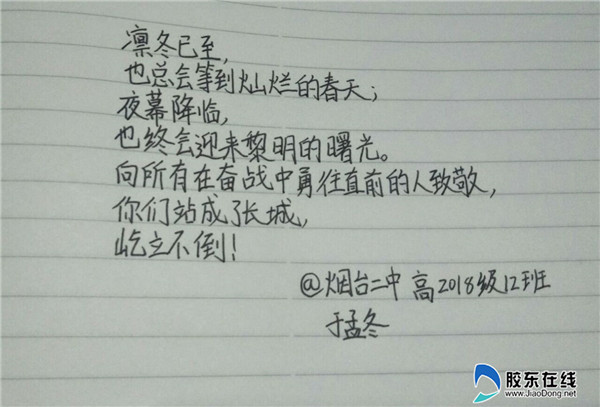 凛冬已至,
也总会等到灿烂的春天;
夜幕降临,
也终会迎来黎明的曙光。
向所有在奋战中勇往直前的人致敬,
你们站成了长城,
屹立不倒!
@烟台二中 高2018级12班
于孟冬
胶东在线
www.JiaoDong.net